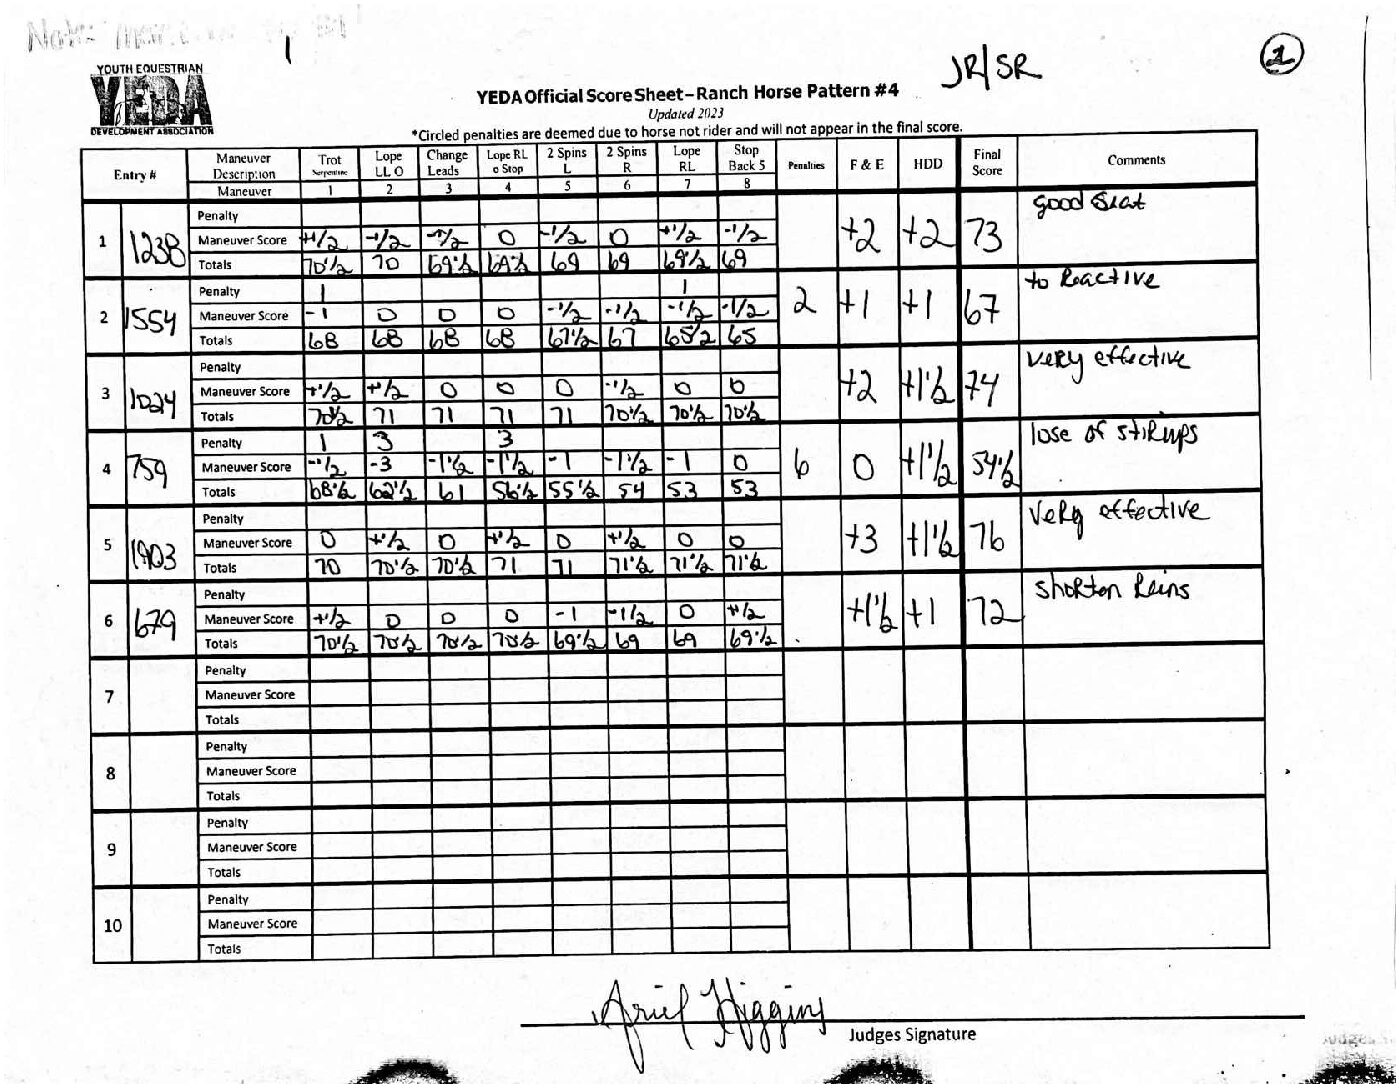 JR/SR
1
YOUTH EQUESTRIAN
YEDA
DEVELOPMENT ASSOCIATION
YEDA Official Score Sheet – Ranch Horse Pattern #4
Updated 2023
*Circled penalties are deemed due to horse not rider and will not appear in the final score.
Entry # Maneuver Description Trot Serpentine Lope LL O Change Leads Lope RL o Stop 2 Spins L 2 Spins R Lope RL Stop Back 5 Penalties F & E HDD Final Score Comments
Maneuver 1 2 3 4 5 6 7 8
1 1238 +2 +2 73 good Seat
Penalty
Maneuver Score +1/2 -1/2 -1/2 0 -1/2 0 +1/2 -1/2
Totals 70 1/2 70 69 1/2 69 1/2 69 69 69 1/2 69
2 1554 2 +1 +1 67 to Reactive
Penalty 1 1
Maneuver Score -1 0 0 0 -1/2 -1/2 -1/2 -1/2
Totals 68 68 68 68 67 1/2 67 65 1/2 65
3 1024 +2 +1 1/2 74 very effective
Penalty
Maneuver Score +1/2 +1/2 0 0 0 -1/2 0 0
Totals 70 1/2 71 71 71 71 70 1/2 70 1/2 70 1/2
4 759 6 0 +1 1/2 54 1/2 lose of stirups
Penalty 1 3 3
Maneuver Score -1/2 -3 -1 1/2 -1 1/2 -1 -1 1/2 -1 0
Totals 68 1/2 62 1/2 61 56 1/2 55 1/2 54 53 53
5 1903 +3 +1 1/2 76 Very effective
Penalty
Maneuver Score 0 +1/2 0 +1/2 0 +1/2 0 0
Totals 70 70 1/2 70 1/2 71 71 71 1/2 71 1/2 71 1/2
6 679 +1 1/2 +1 72 shorton Reins
Penalty
Maneuver Score +1/2 0 0 0 -1 -1/2 0 +1/2
Totals 70 1/2 70 1/2 70 1/2 70 1/2 69 1/2 69 69 69 1/2
7
Penalty
Maneuver Score
Totals
8
Penalty
Maneuver Score
Totals
9
Penalty
Maneuver Score
Totals
10
Penalty
Maneuver Score
Totals
Ariel Higgins
Judges Signature